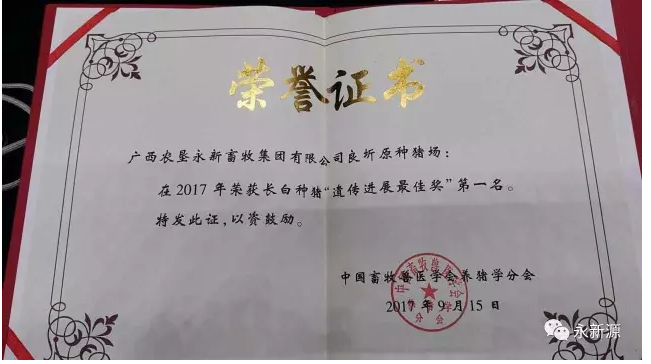 荣誉证书
广西农垦永新畜牧集团有限公司良圻原种猪场：
在2017年荣获长白种猪“遗传进展最佳奖”第一名。
特发此证，以资鼓励。
中国畜牧兽医学会养猪学分会
2017年9月15日
永新源